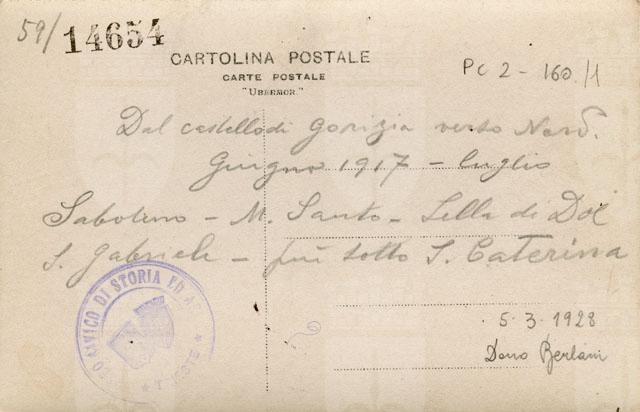 59/ 14654
CARTOLINA POSTALE
CARTE POSTALE
"UBERMOR."
PC 2 - 160/1
Dal castello di Gorizia verso Nord.
Giugno 1917 - luglio
Sabotino - M. Santo - Sella di Dol
S. Gabriele - più sotto S. Caterina
CIVICO DI STORIA ED AR
★ TRIESTE ★
5.3.1928
Dono Berlam